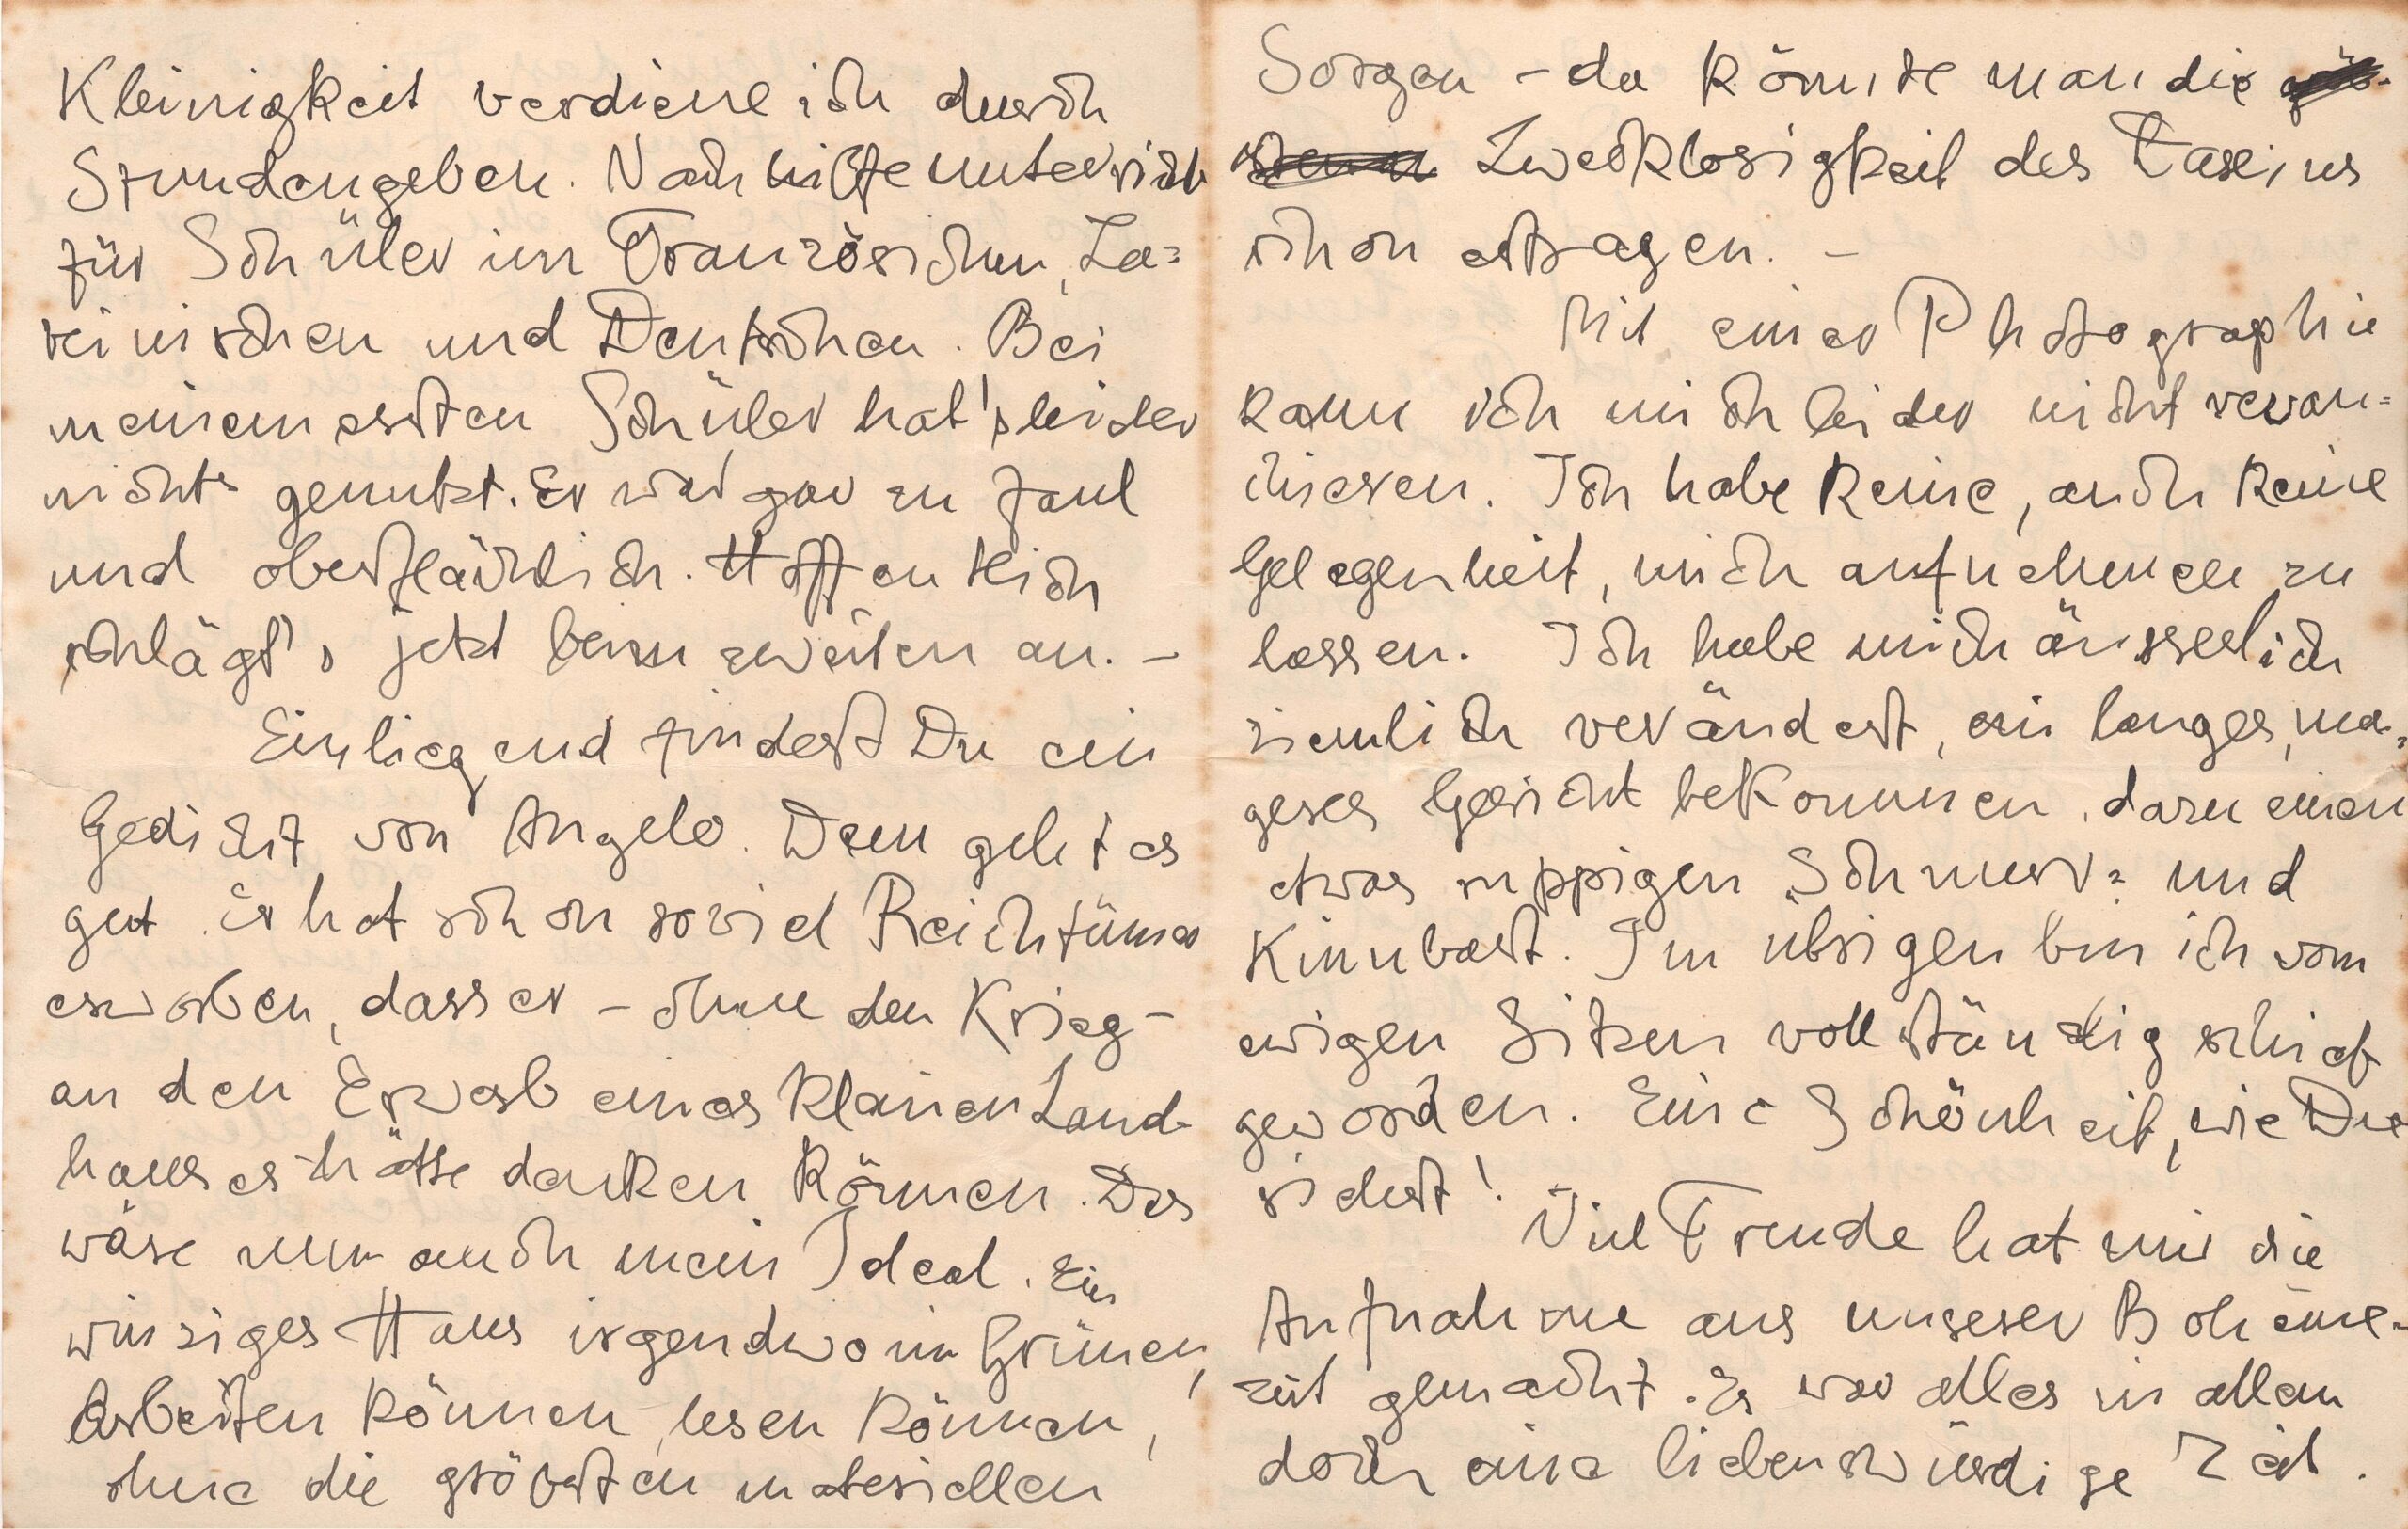 Kleinigkeit verdiene ich durch
Stundengeben. Nachhilfeunterricht
für Schüler im Französischen, La=
teinischen und Deutschen. Bei
meinem ersten Schüler hat's leider
nichts genutzt. Er war gar zu faul
und oberflächlich. Hoffentlich
schlägt's jetzt beim zweiten an. –
Einliegend findest Du ein
Gedicht von Angelo. Dem geht es
gut. Er hat schon soviel Reichtümer
erworben, dass er – ohne den Krieg –
an den Erwerb eines kleinen Land-
hauses hätte denken können. Das
wäre nun auch mein Ideal. Ein
winziges Haus irgendwo im Grünen,
Arbeiten können, lesen können,
ohne die gröbsten materiellen
Sorgen – da könnte man die
Zwecklosigkeit des Daseins
schon ertragen. –
Mit einer Photographie
kann ich mich leider nicht revan=
chieren. Ich habe keine, auch keine
Gelegenheit, mich aufnehmen zu
lassen. Ich habe mich äusserlich
ziemlich verändert, ein langes, ma=
geres Gesicht bekommen, dazu einen
etwas ruppigen Schnurr= und
Kinnbart. Im übrigen bin ich vom
ewigen Sitzen vollständig schief
geworden. Eine Schönheit, wie Du
siehst!
Viel Freude hat mir die
Aufnahme aus unserer Bohème-
zeit gemacht. Es war alles in allem
doch eine liebenswürdige Zeit.